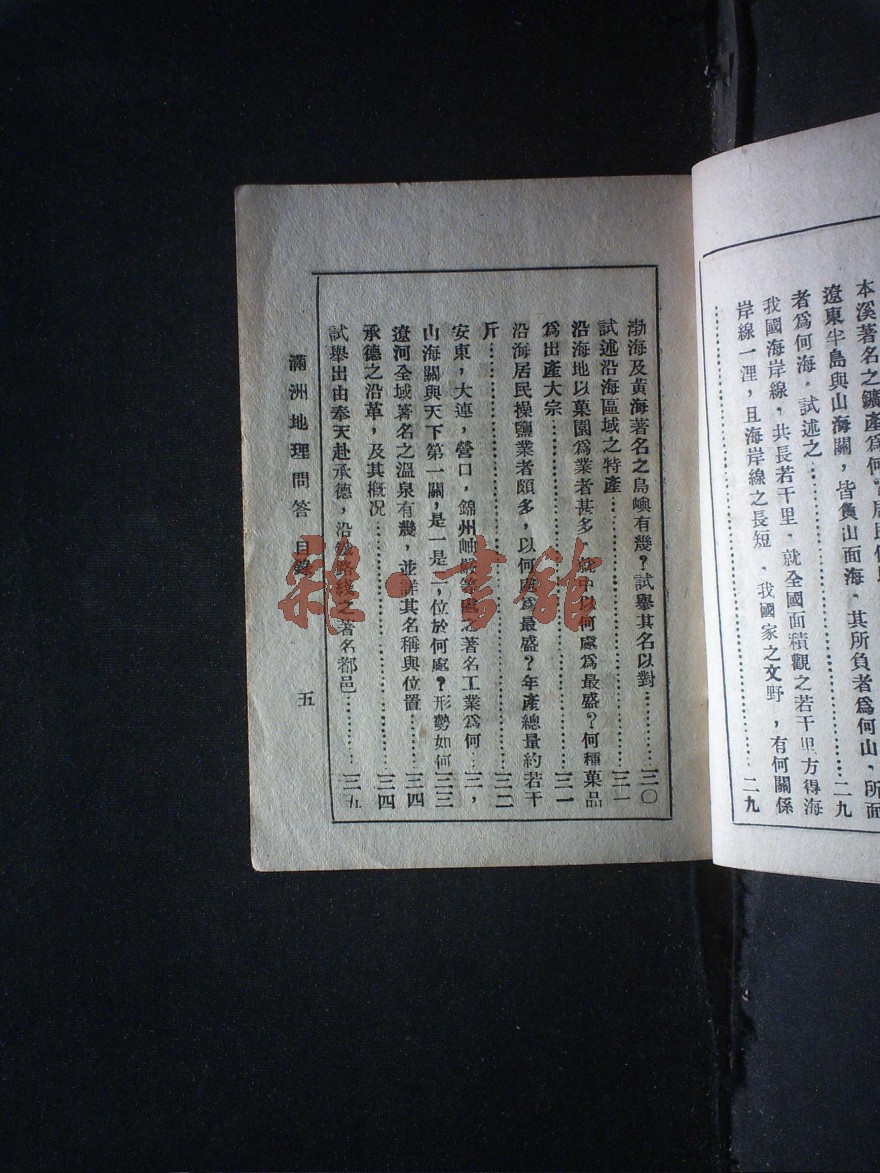 本溪著名之鑛產爲何？居民
遼東半島與山海關，皆負山面海、其所負者爲何山，所面
者爲何海，試述之⋯⋯二九
我國海岸線，共長若干里、就全國面積觀之若干里方得海
岸線一浬，且海岸線之長短、我國家之文野，有何關係
⋯⋯二九
渤海及黃海著名之島嶼有幾？試舉其名以對⋯⋯三〇
試述沿海區域之特產⋯⋯三一
沿海地以菓園爲業者甚多，就中以何處爲最盛？何種菓品
爲出產大宗⋯⋯三一
沿海居民操鹽業者頗多，以何處爲最盛？年產總量約若干
斤⋯⋯三二
安東，大連，營口，錦州岫巖等處之著名工業爲何⋯三，
山海關與天下第一關，是一是二，位於何處？形勢如何 三三
遼河全域著名之溫泉有幾，並詳其名稱與位置⋯⋯三四
承德之沿革，及其概況⋯⋯三四
試舉出由奉天赴承德，沿途路线之著名都邑⋯⋯三五
滿洲地理問答 目錄 五
雜·書館